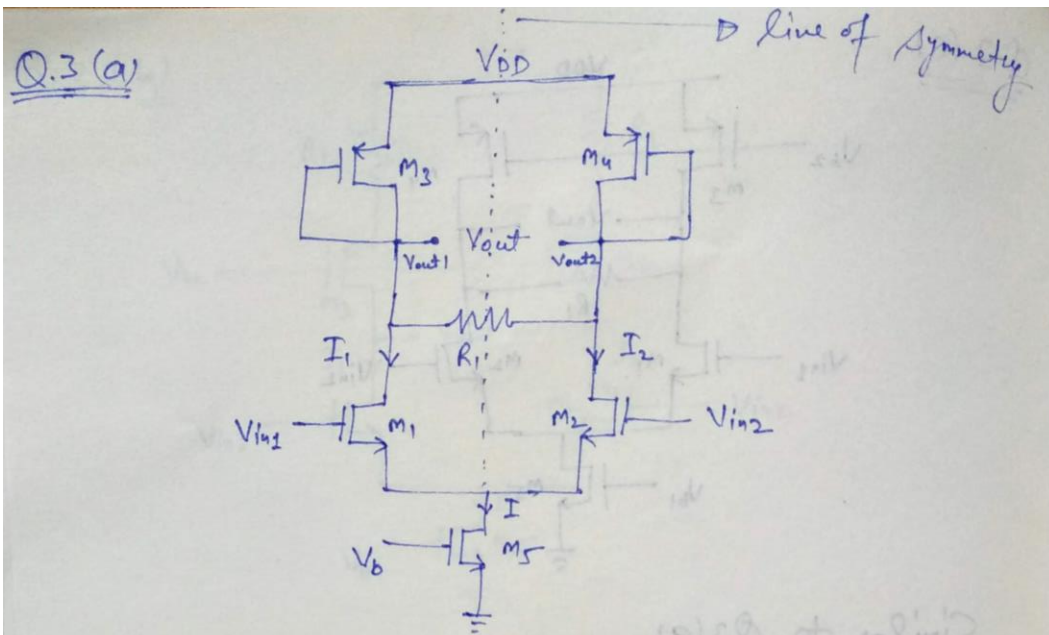 line of symmetry
Q.3 (a)
VDD
M3
M4
Vout
Vout1
Vout2
I1
R1
I2
Vin1
M1
M2
Vin2
I
Vb
M5